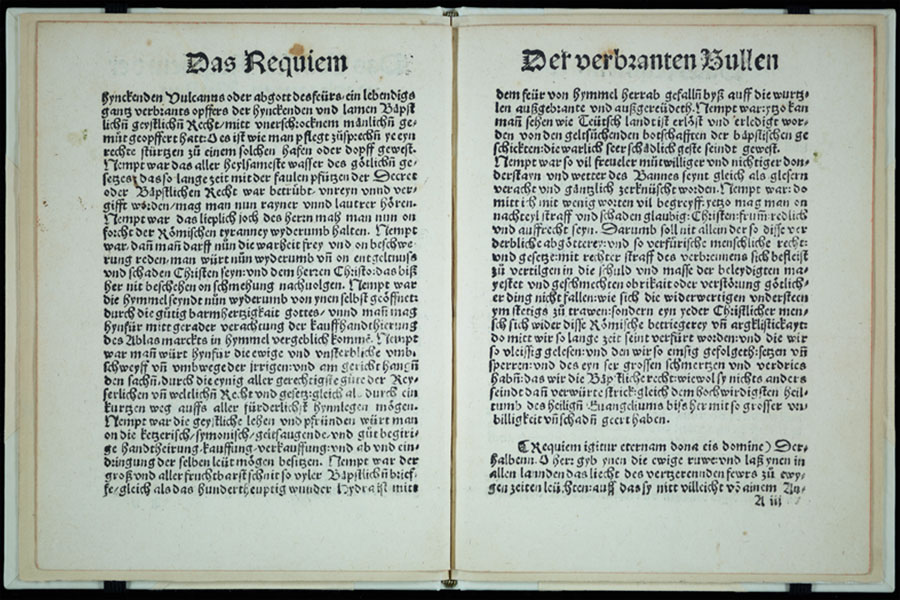 Das Requiem
hynckenden Vulcanus oder abgott des feürs/ ein lebendigs
gantz verbrants opffers der hynckenden vnd lamen Bäpst
lichñ geystlichñ Recht/ mitt vnerschrocknem mänlichñ ge-
müt geopffert hatt: O es ist wie man pflegt züsprechñ ye eyn
rechte stürtzen zü einem solchen hafen oder dopff gewest.
Nempt war das aller heylsameste wasser des götlichñ ge-
setzes/ das so lange zeit mit der faulen pfützen der Decret
oder Bäpstlichen Recht war betrübt/ vnreyn vnnd ver-
gifft worden/ mag man nun rayner vnnd lautrer hören.
Nempt war das lieplich joch des herrn mag man nun on
forcht der Römischen tyranney wyderumb halten. Nempt
war/ dañ man darff nün die warheit frey vnd on beschwe-
rung reden/ man würt nün wyderumb vñ on entgeltnuss
vnd schaden Christen seyn: vnd dem herren Christo: das biß
her nit beschehen on schmehung nachuolgen. Nempt war
die hymmel seyndt nün wyderumb von ynen selbst geöffnet:
durch die gütig barmhertzigkait gottes/ vnnd mañ mag
hynfür mitt gerader verachtung der kauffhandthierung
des Ablas marckts in hymmel vergeblich kommē. Nempt
war mañ würt hynfür die ewige vnd vnsterbliche vmb-
schweyff vñ vmbwege der irrigen: vnd am gericht hangñ
den sachñ/ durch die eynig aller gerechtigste güte der Key-
serlichen vñ weltlichñ Recht vnd gesetz: gleich als durch ein
kurtzen weg auffs aller fürderlichst hynnlegen mögen.
Nempt war die geystliche lehen vnd pfründen würt man
on die ketzerisch/ symonisch/ geitsaugende/ vnd güt begiri-
ge handtheirung/ kauffung/ verkauffung: vnd ab vnd ein-
dringung der selben leüt mögen besitzen. Nempt war der
groß vnd aller fruchtbarst schnit so vyler Bäpstlichñ brief-
fe/ gleich als das hundertheuptig wunder Hydra ist mitt
Der verbranten Bullen
dem feür von hymmel herrab gefallñ byß auff die wurtz-
len außgebrante vnd außgereüdeth. Nempt war: ytzo kan
man sehen wie Teütsch landt ist erlöst vnd erledigt wor-
den von den geltsüchenden botschafften der bäpstischen ge
schickten: die warlich seer schädlich geste seindt gewest.
Nempt war so vil freueler mütwilliger vnd nichtiger don-
derstayn vnd wetter des Bannes seynt gleich als glesern
veracht vnd gäntzlich zerknüscht worden. Nempt war: do
mitt ich mit wenig worten vil begreyff: yetzo mag man on
nachteyl straff vnd schaden glaubig: Christen: frum̄: redlich
vnd auffrecht seyn. Darumb soll nit allein der so disse ver
derbliche abgötterey: vnd so verfürische menschliche recht:
vnd gesetz: mit rechter straff des verbrennens sich befleist
zü vertilgen in die schuld vnd masse der beleydigten ma-
yestet vnd geschmechten obrikait oder verstörung götlich-
er ding nicht fallen: wie sich die widerwertigen vndersteen
ym stetigs zü trawen: sondern eyn yeder Christlicher men-
sch sich wider disse Römische betriegerey vñ argklistickayt:
do mitt wir so lange zeit seint verfürt worden: vnd die wir
so vleissig gelesen: vnd den wir so emsig gefolgeth: setzen vñ
sperren: vnd des eyn ser grossen schmertzen vnd verdries
habñ: das wir die Bäpstliche recht: wiewol sy nichts anders
seindt dañ verwürte strick: gleich dem hochwirdigsten heil-
tumb des heiligñ Euangeliums bißher mit so grosser vn-
billigkeit vñ schadñ geert haben.
Requiem igitur eternam dona eis domine) Der-
halbenn. O herr gyb ynen die ewige ruwe: vnd laß ynen in
allen lannden das liecht des vertzerennden fewrs zü ewy-
gen zeiten leüchten: auff das sy nitt villeicht vō ainem An-
A iii